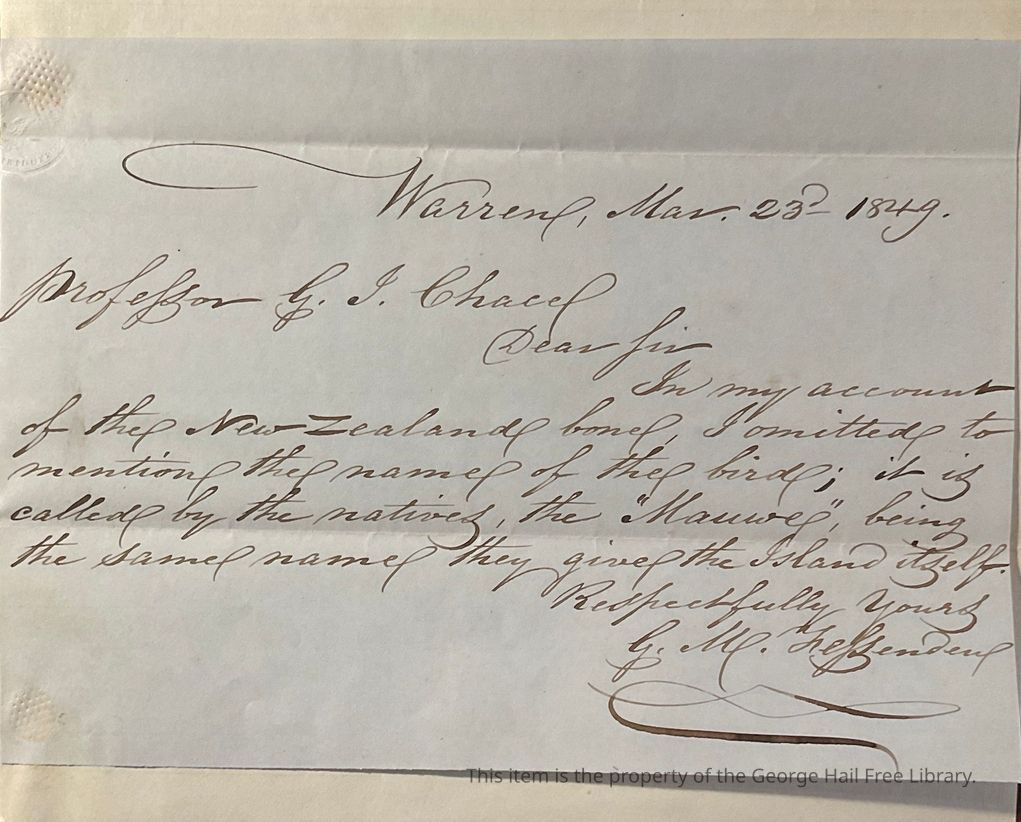 Warren, Mar. 23d 1849.
Professor G. I. Chace
Dear Sir
In my account
of the New Zealand bone, I omitted to
mention the name of the bird; it is
called by the natives, the "Mauwe", being
the same name they give the Island itself.
Respectfully Yours
G. M. Fessenden
This item is the property of the George Hail Free Library.